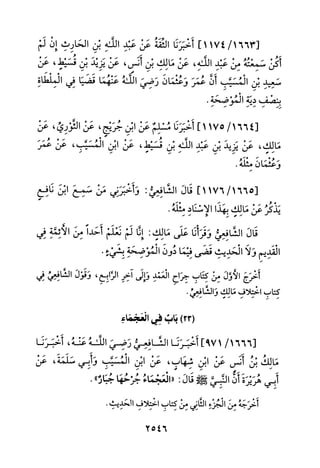 [١١٧٤/١٦٦٣] أَخْبَرَنَا الثِّقَةُ عَنْ عَبْدِ اللَّهِ بْنِ الْحَارِثِ إِنْ لَمْ
أَكُنْ سَمِعْتُهُ مِنْ عَبْدِ اللَّهِ، عَنْ مَالِكِ بْنِ أَنَسٍ، عَنْ يَزِيدَ بْنِ قُسَيْطٍ، عَنْ
سَعِيدِ بْنِ الْمُسَيَّبِ أَنَّ عُمَرَ وَعُثْمَانَ رَضِيَ اللَّهُ عَنْهُمَا قَضَيَا فِي الْمِلْطَاةِ
بِنِصْفِ دِيَةِ الْمُوْضِحَةِ.
[١١٧٥/١٦٦٤] أَخْبَرَنَا مُسْلِمٌ عَنْ ابْنِ جُرَيْجٍ، عَنِ الثَّوْرِيِّ، عَنْ
مَالِكٍ، عَنْ يَزِيدَ بْنِ عَبْدِ اللَّهِ بْنِ قُسَيْطٍ، عَنْ ابْنِ الْمُسَيَّبِ، عَنْ عُمَرَ
وَعُثْمَانَ مِثْلُهُ.
[١١٧٦/١٦٦٥] قَالَ الشَّافِعِيُّ: وَأَخْبَرَنِي مَنْ سَمِعَ ابْنَ نَافِعٍ
يَذْكُرُ عَنْ مَالِكٍ بِهَذَا الإِسْنَادِ مِثْلُهُ.
قَالَ الشَّافِعِيُّ وَقَرَأْنَا عَلَى مَالِكٍ: إِنَّا لَمْ نَعْلَمْ أَحَداً مِنَ الأَئِمَّةِ فِي
الْقَدِيمِ وَلاَ الْحَدِيثِ قَضَى فِيْمَا دُونَ الْمُوْضِحَةِ بِشَيْءٍ.
أَخْرَجَ الأَوَّلَ مِنْ كِتَابِ جِرَاحِ الْعَمْدِ وَإِلَى آخِرِ الرَّابِعِ، وَقَوْلَ الشَّافِعِيِّ فِي
كِتَابِ اخْتِلافِ مَالِكٍ وَالشَّافِعِيِّ.
(٢٣) بَابٌ فِي الْعَجْمَاءِ
[٩٧١/١٦٦٦] أَخْبَرَنَا الشَّافِعِيُّ رَضِيَ اللَّهُ عَنْهُ، أَخْبَرَنَا
مَالِكُ بْنُ أَنَسٍ عَنْ ابْنِ شِهَابٍ، عَنْ ابْنِ الْمُسَيَّبِ وَأَبِي سَلَمَةَ، عَنْ
أَبِي هُرَيْرَةَ أَنَّ النَّبِيَّ ﷺ قَالَ: «الْعَجْمَاءُ جُرْحُهَا جُبَارٌ».
أَخْرَجَهُ مِنَ الْجُزْءِ الثَّانِي مِنْ كِتَابِ اخْتِلافِ الْحَدِيثِ.
٢٥٤٦